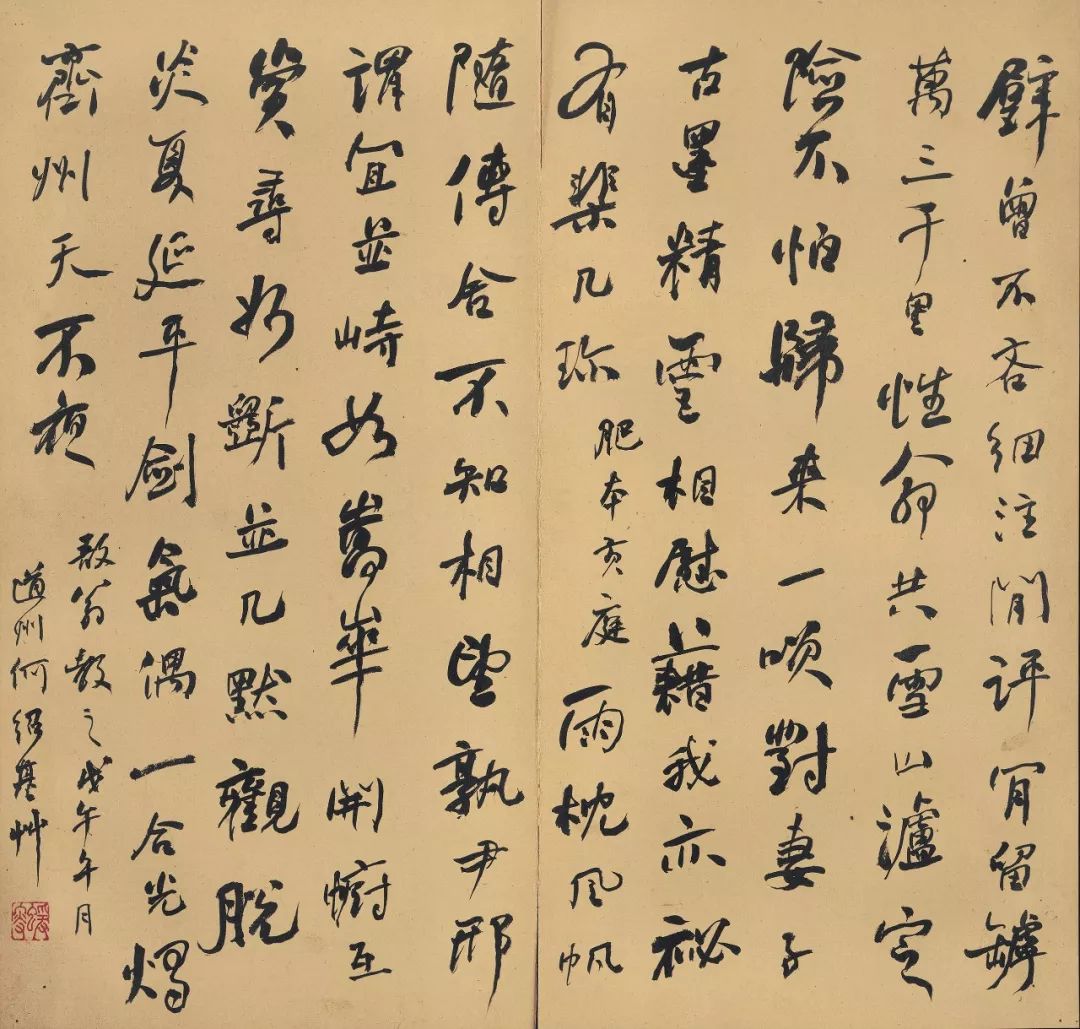 璧曾不吝細注閒評肎留罅
萬三千里性命共雪山瀘定
險不怕歸來一咲對妻子
古墨精靈相慰藉我亦祕
有棐几珍肥本黃庭雨枕風帆
隨傳舍不知相望孰尹邢
謂宜並峙如嵩華開幮互
質尋妙斷並几默觀脫
炎夏延平劍氣偶一合光燭
齊州天不夜
翁教之戊午午月
道州何紹基艸